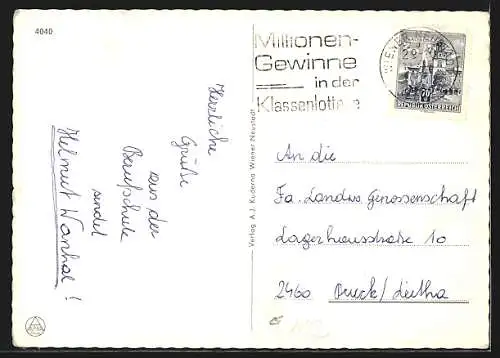 4040
Millionen-
Gewinne
in der
Klassenlotterie
WIENER NEUSTADT
REPUBLIK ÖSTERREICH
Herzliche
Grüße
aus der
Berufschule
sendet
Helmut Wanhal!
Verlag A. J. Kuderna Wiener Neustadt
An die
Fa. Landw. Genossenschaft
Lagerhausstraße 10
2460 Bruck/Leitha